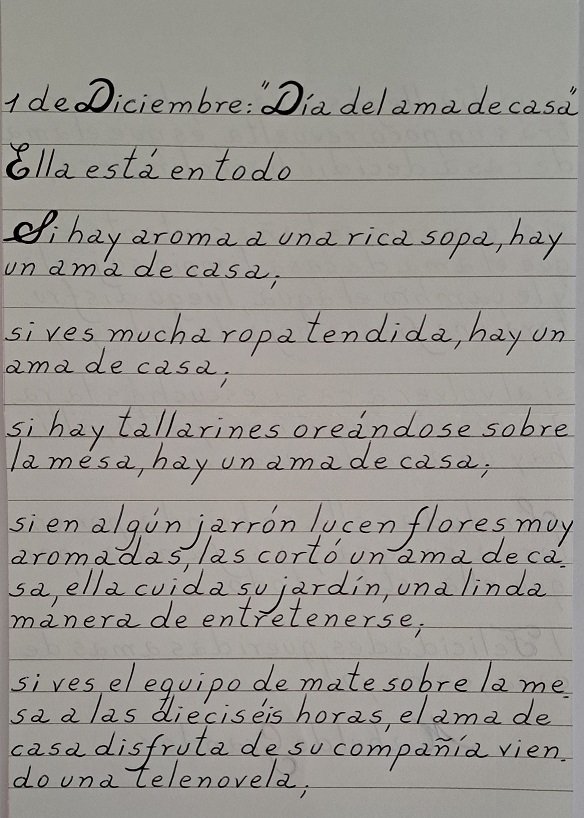 1 de Diciembre: "Día del ama de casa"
Ella está en todo
Si hay aroma a una rica sopa, hay
un ama de casa;
si ves mucha ropa tendida, hay un
ama de casa;
si hay tallarines oreándose sobre
la mesa, hay un ama de casa;
si en algún jarrón lucen flores muy
aromadas, las cortó un ama de ca-
sa, ella cuida su jardín, una linda
manera de entretenerse;
si ves el equipo de mate sobre la me-
sa a las dieciséis horas, el ama de
casa disfruta de su compañía vien-
do una telenovela;